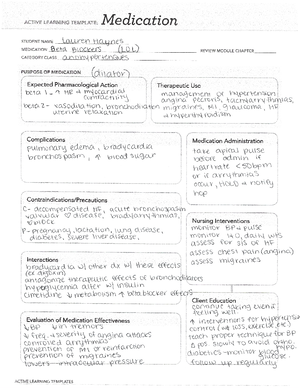 ACTIVE LEARNING TEMPLATE: Medication
STUDENT NAME Lauren Haynes
MEDICATION Beta Blockers (LOL)
REVIEW MODULE CHAPTER
CATEGORY CLASS antihypertensives
PURPOSE OF MEDICATION (dilator)
Expected Pharmacological Action
beta 1 - ↑ HR & myocardial
contractility
beta 2 - vasodilation, bronchodilation
uterine relaxation
Therapeutic Use
management of hypertension
angina pectoris, tachyarrhythmias,
migraines, MI, glaucoma, HF
hyperthyroidism
Complications
pulmonary edema, bradycardia
bronchospasm, ↑ blood sugar
Medication Administration
take apical pulse
before admin if
heartrate <50bpm
or if arrhythmias
occur, HOLD & notify
hcp
Contraindications/Precautions
C- decompensated HF, acute bronchospasm
valvular disease, bradyarrhythmias,
P- pregnancy, lactation, lung disease,
diabetes, severe liver disease,
Nursing Interventions
monitor BP & pulse
monitor I&O, daily wts
assess for s/s of HF
assess chest pain (angina)
assess migraines
Interactions
bradycardia w/ other dx w/ these effects
(ex digoxin)
antagonistic therapeutic effects of bronchodilators
hypoglycemia after w/ insulin
cimetidine ↓ metabolism ↑ beta blocker effects
Evaluation of Medication Effectiveness
↓ BP ↓ tremors
↓ freq & severity of angina attacks
controlled arrhythmias
prevention of MI or reinfarction
prevention of migraines
lowers intraocular pressure
Client Education
continue taking even if
feeling well
interventions for hypertension
teach proper technique for BP
↓ pos slowly to avoid ortho
diabetics - monitor blood
glucose
follow up regularly
ACTIVE LEARNING TEMPLATES